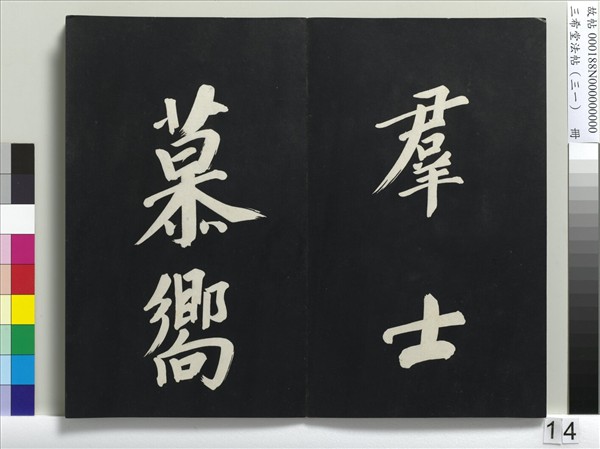 羣士
慕嚮
故帖 000188N000000000
三希堂法帖(三一) 冊
14